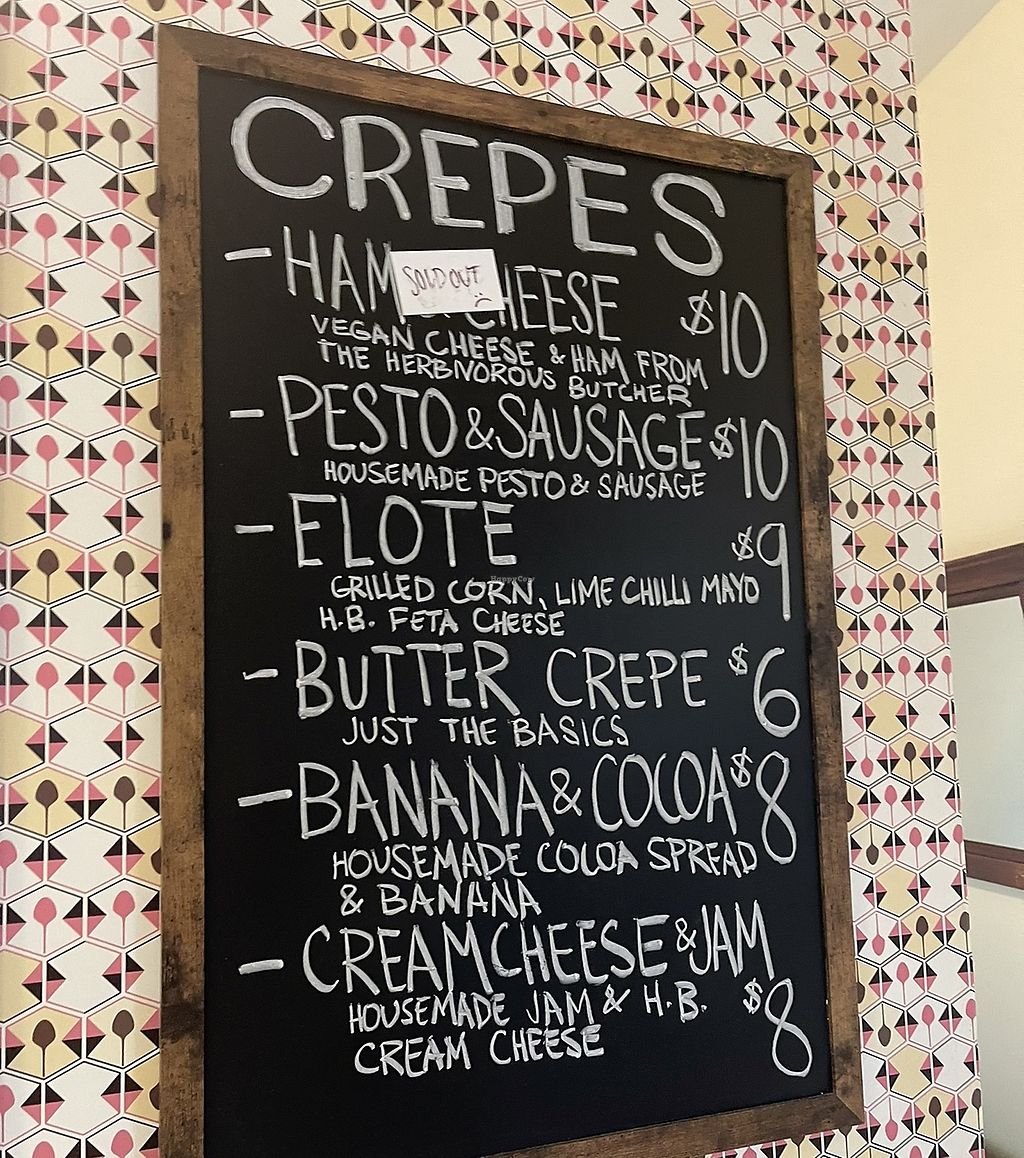 CREPES
- HAM CHEESE $10
SOLD OUT
VEGAN CHEESE & HAM FROM
THE HERBNOROUS BUTCHER
- PESTO & SAUSAGE $10
HOUSEMADE PESTO & SAUSAGE
- ELOTE $9
GRILLED CORN, LIME CHILLI MAYO
H.B. FETA CHEESE
- BUTTER CREPE $6
JUST THE BASICS
- BANANA & COCOA $8
HOUSEMADE COCOA SPREAD
& BANANA
- CREAM CHEESE & JAM
HOUSEMADE JAM & H.B. $8
CREAM CHEESE
HappyCow